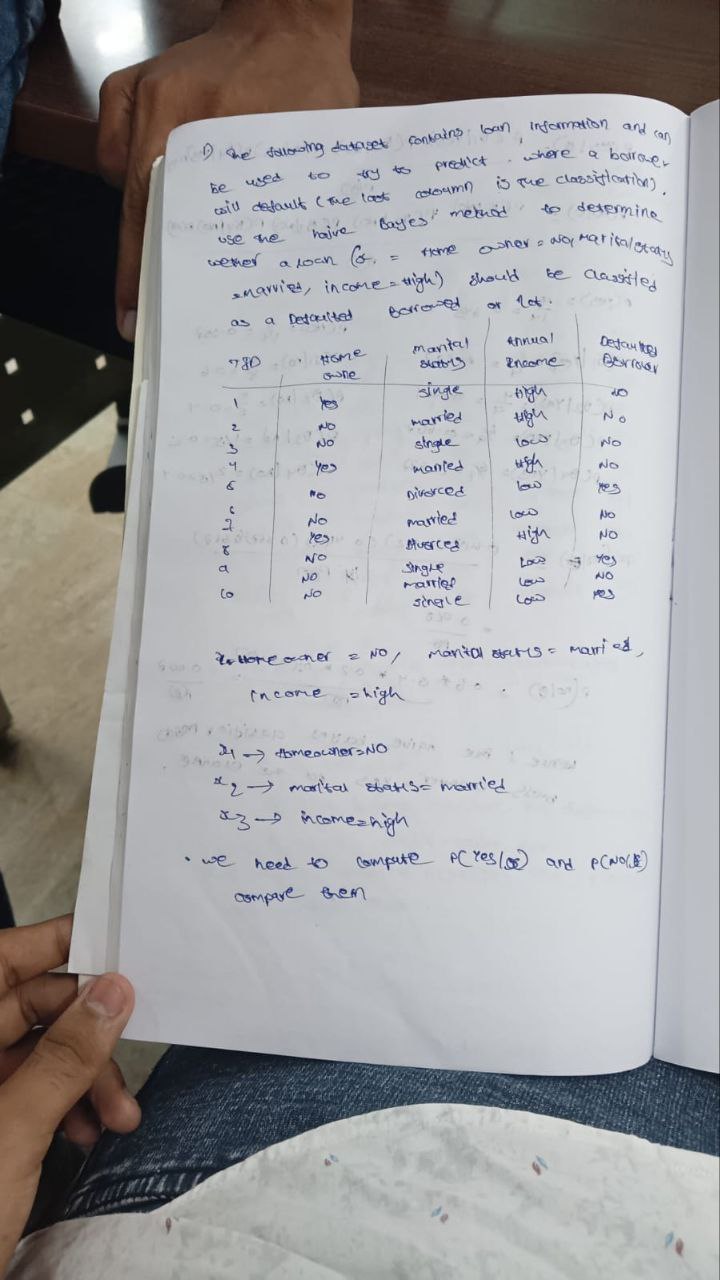 1) The following dataset contains loan information and can
be used to try to predict where a borrower
will default (the last column is the classification).
use the naive Bayes' method to determine
wether a loan ( = Home owner = NO, Marital status
=married, income = High) should be classified
as a Defaulted Borrowed or not.
TID Home owne Marital status Annual Income Defaulted Borrower
1 Yes single High NO
2 NO married High NO
3 NO single low NO
4 Yes married High NO
5 NO Divorced low Yes
6 NO married low NO
7 Yes Divorced High NO
8 NO single Low Yes
9 NO married Low NO
10 NO single Low Yes
Home owner = NO, marital status = married,
income = high
x1 → Homeowner=NO
x2 → marital status= married
x3 → income=high
• we need to compute P(Yes/x) and P(NO/x)
compare them